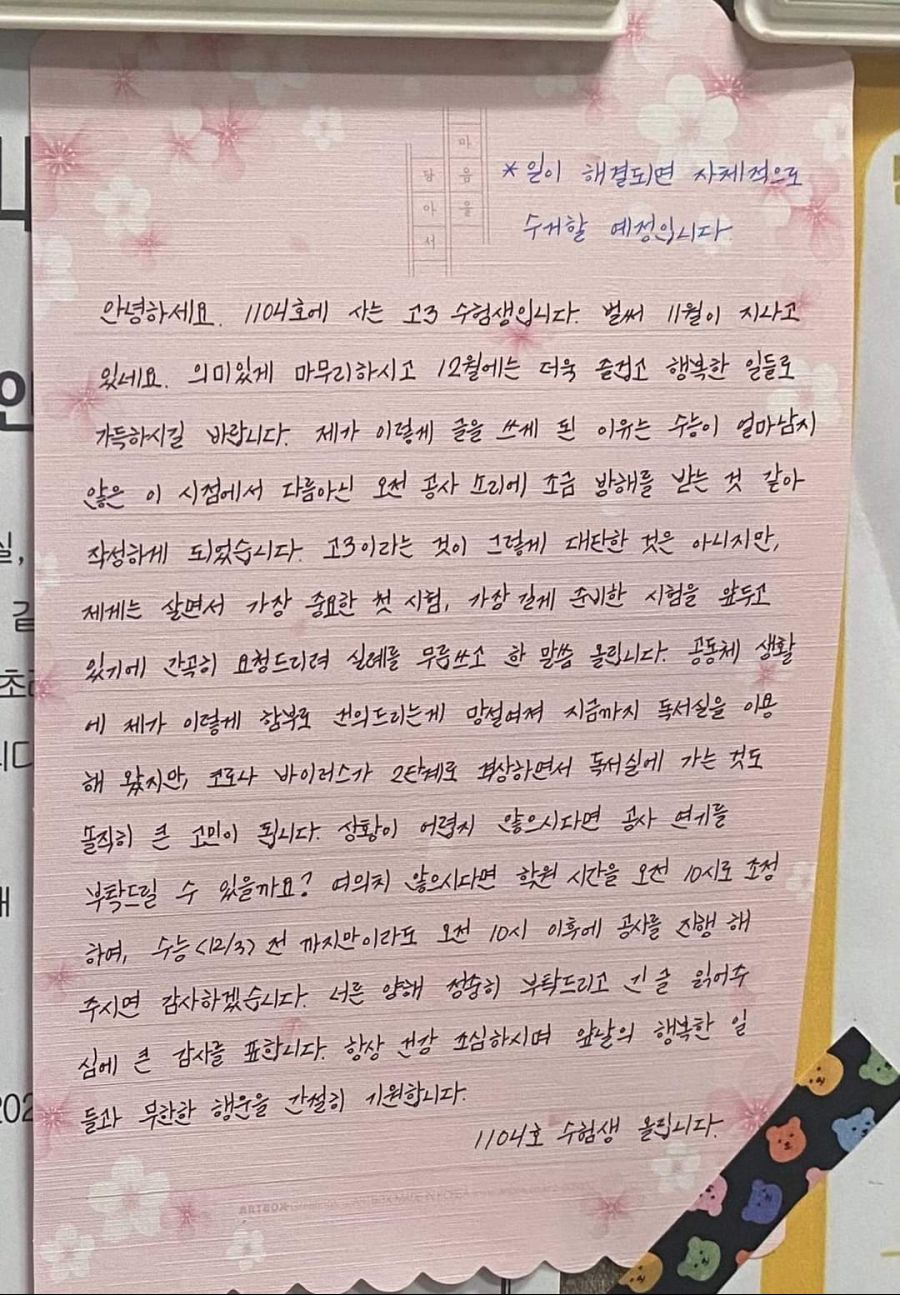 마음을
담아서
*일이 해결되면 자체적으로
수거할 예정입니다
안녕하세요. 1104호에 사는 고3 수험생입니다. 벌써 11월이 지나고
있네요. 의미있게 마무리하시고 12월에는 더욱 즐겁고 행복한 일들로
가득하시길 바랍니다. 제가 이렇게 글을 쓰게 된 이유는 수능이 얼마남지
않은 이 시점에서 다름아닌 오전 공사 소리에 조금 방해를 받는 것 같아
작성하게 되었습니다. 고3이라는 것이 그렇게 대단한 것은 아니지만,
제게는 살면서 가장 중요한 첫 시험, 가장 길게 준비한 시험을 앞두고
있기에 간곡히 요청드리려 실례를 무릅쓰고 한 말씀 올립니다. 공동체 생활
에 제가 이렇게 함부로 건의드리는게 망설여져 지금까지 독서실을 이용
해 왔지만, 코로나 바이러스가 2단계로 격상하면서 독서실에 가는 것도
솔직히 큰 고민이 됩니다. 상황이 어렵지 않으시다면 공사 연기를
부탁드릴 수 있을까요? 여의치 않으시다면 학원 시간을 오전 10시로 조정
하여, 수능<12/3> 전 까지만이라도 오전 10시 이후에 공사를 진행 해
주시면 감사하겠습니다. 너른 양해 정중히 부탁드리고 긴 글 읽어주
심에 큰 감사를 표합니다. 항상 건강 조심하시며 앞날의 행복한 일
들과 무한한 행운을 간절히 기원합니다.
1104호 수험생 올립니다.